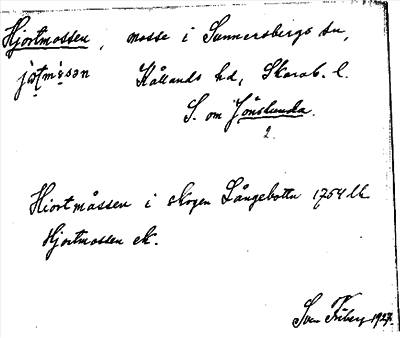 Hjortmossen, mosse i Sunnersbergs sn,
Kållands hd, Skarab. l.
S. om Jönslunda.
2.
Hiortmåssen i skogen Långebottn 1754 LM
Hjortmossen ek.
Sven Friberg 1927.